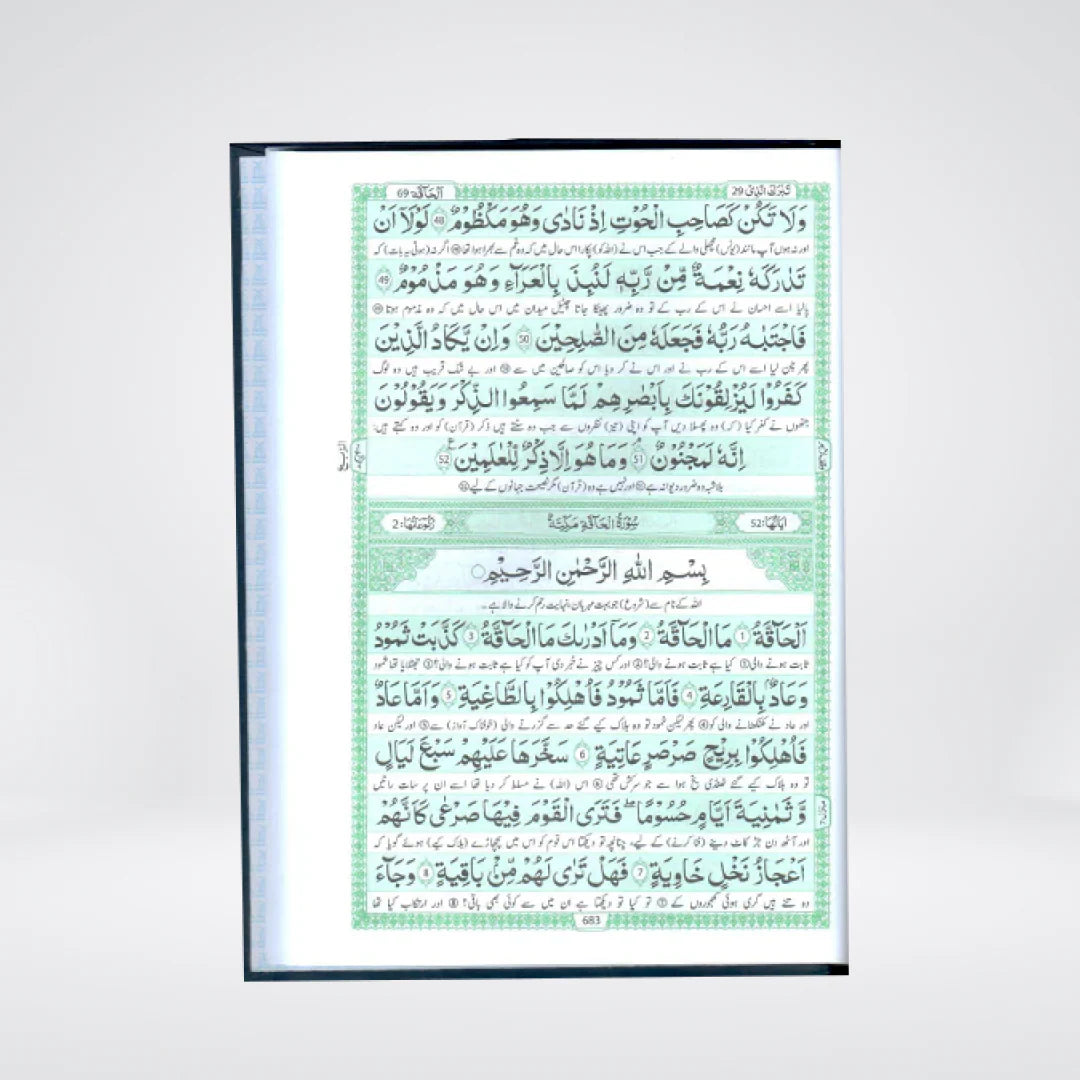 تَبٰرَكَ الَّذِىْ 29
اَلْحَآقَّة 69
وَلَا تَكُنْ كَصَاحِبِ الْحُوْتِ اِذْ نَادٰى وَهُوَ مَكْظُوْمٌ 48 لَوْلَآ اَنْ
اور نہ ہوں آپ مانند (یونس) مچھلی والے کے جب اس نے (اللہ کو) پکارا اس حال میں کہ وہ غم سے بھرا ہوا تھا ㊽ اگر نہ (ہوتی یہ بات) کہ
تَدٰرَكَهٗ نِعْمَةٌ مِّنْ رَّبِّهٖ لَنُبِذَ بِالْعَرَآءِ وَهُوَ مَذْمُوْمٌ 49
پالیا اسے احسان نے اس کے رب کے تو وہ ضرور پھینکا جاتا چٹیل میدان میں اس حال میں کہ وہ مذموم ہوتا ㊾
فَاجْتَبٰىهُ رَبُّهٗ فَجَعَلَهٗ مِنَ الصّٰلِحِيْنَ 50 وَاِنْ يَّكَادُ الَّذِيْنَ
پھر چن لیا اسے اس کے رب نے اور اس نے کر دیا اس کو صالحین میں سے ㊿ اور بے شک قریب ہیں وہ لوگ
كَفَرُوْا لَيُزْلِقُوْنَكَ بِاَبْصٰرِهِمْ لَمَّا سَمِعُوا الذِّكْرَ وَيَقُوْلُوْنَ
جنھوں نے کفر کیا (کہ) وہ پھسلا دیں آپ کو اپنی (تیز) نظروں سے جب وہ سنتے ہیں ذکر (قرآن) کو اور وہ کہتے ہیں:
اِنَّهٗ لَمَجْنُوْنٌ 51 وَمَا هُوَ اِلَّا ذِكْرٌ لِّلْعٰلَمِيْنَ 52
بلاشبہ وہ ضرور دیوانہ ہے اور نہیں ہے وہ (قرآن) مگر نصیحت جہانوں کے لیے
اٰيَاتُهَا: 52
سُوْرَةُ الْحَآقَّةِ مَكِّيَّةٌ
رُكُوْعَاتُهَا: 2
بِسْمِ اللّٰهِ الرَّحْمٰنِ الرَّحِيْمِ
اللہ کے نام سے (شروع) جو بہت مہربان، نہایت رحم کرنے والا ہے۔
اَلْحَآقَّةُ 1 مَا الْحَآقَّةُ 2 وَمَآ اَدْرٰىكَ مَا الْحَآقَّةُ 3 كَذَّبَتْ ثَمُوْدُ
ثابت ہونے والی① کیا ہے ثابت ہونے والی؟② اور کس چیز نے خبر دی آپ کو کیا ہے ثابت ہونے والی؟③ جھٹلایا تھا ثمود
وَعَادٌۢ بِالْقَارِعَةِ 4 فَاَمَّا ثَمُوْدُ فَاُهْلِكُوْا بِالطَّاغِيَةِ 5 وَاَمَّا عَادٌ
اور عاد نے کھٹکھٹانے والی کو④ پھر لیکن ثمود تو وہ ہلاک کیے گئے حد سے گزرنے والی (خوفناک آواز) سے⑤ اور لیکن عاد
فَاُهْلِكُوْا بِرِيْحٍ صَرْصَرٍ عَاتِيَةٍ 6 سَخَّرَهَا عَلَيْهِمْ سَبْعَ لَيَالٍ
تو وہ ہلاک کیے گئے ٹھنڈی یخ ہوا سے جو سرکش تھی⑥ اس (اللہ) نے مسلط کر دیا تھا اسے ان پر سات راتیں
وَّثَمٰنِيَةَ اَيَّامٍ حُسُوْمًا فَتَرَى الْقَوْمَ فِيْهَا صَرْعٰى كَاَنَّهُمْ
اور آٹھ دن جڑ کاٹ دینے (فنا کرنے) کے لیے، چنانچہ تو دیکھتا اس قوم کو اس میں پچھاڑے (ہلاک کیے) ہوئے گویا کہ
اَعْجَازُ نَخْلٍ خَاوِيَةٍ 7 فَهَلْ تَرٰى لَهُمْ مِّنْۢ بَاقِيَةٍ 8 وَجَآءَ
وہ تنے ہیں گری ہوئی کھجوروں کے⑦ تو کیا تو دیکھتا ہے ان میں سے کوئی بھی باقی؟⑧ اور ارتکاب کیا تھا
683